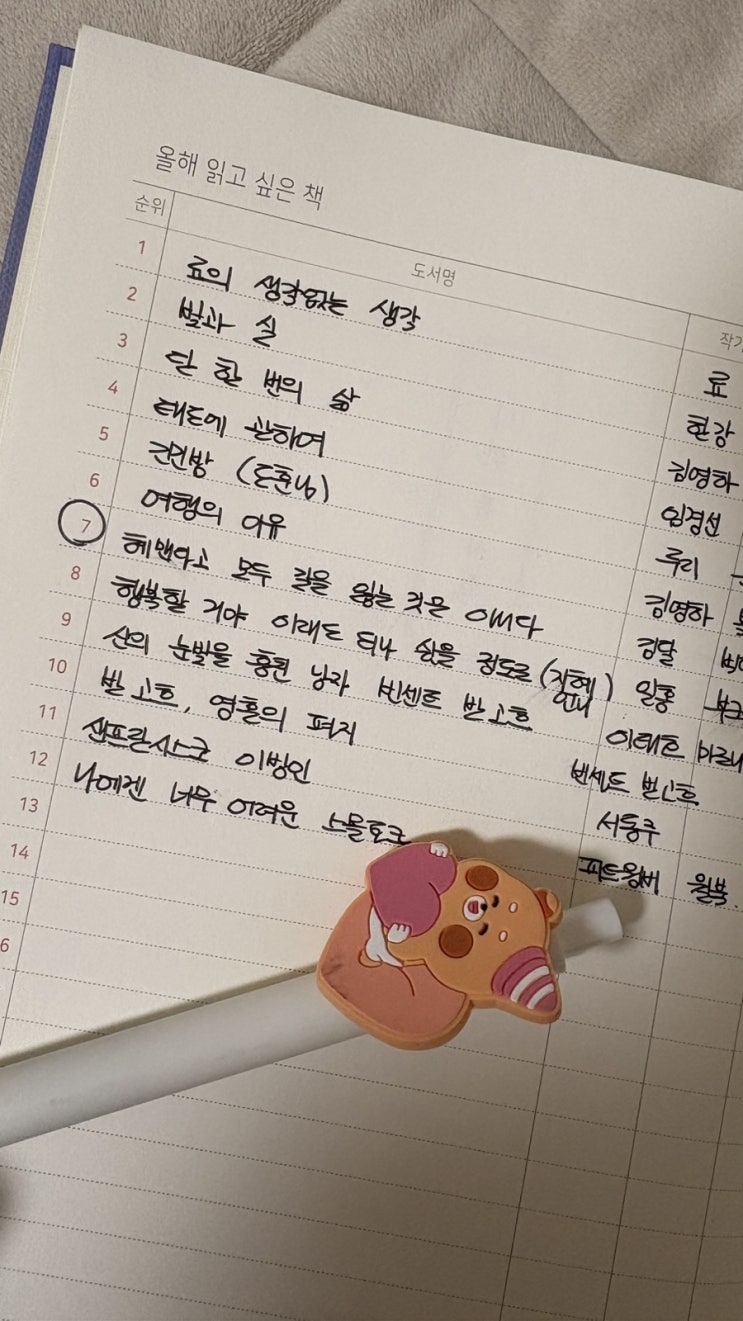 올해 읽고 싶은 책
순위 도서명
1 료의 생각없는 생각 료
2 빛과 실 한강
3 단 한 번의 삶 김영하
4 태도에 관하여 임경선
5 긴긴밤 (도훈님) 루리
6 여행의 이유 김영하
7 헤맨다고 모두 길을 잃는 것은 아니다 김달
8 행복할 거야 이래도 되나 싶을 정도로 (지혜언니) 일홍
9 신의 눈빛을 훔친 남자 빈센트 반 고흐 이태호
10 반 고흐, 영혼의 편지 빈센트 반 고흐
11 샌프란시스코 이방인 서동주
12 나에겐 너무 어려운 스몰토크 피트 웜버 윌북
13
14
15
6